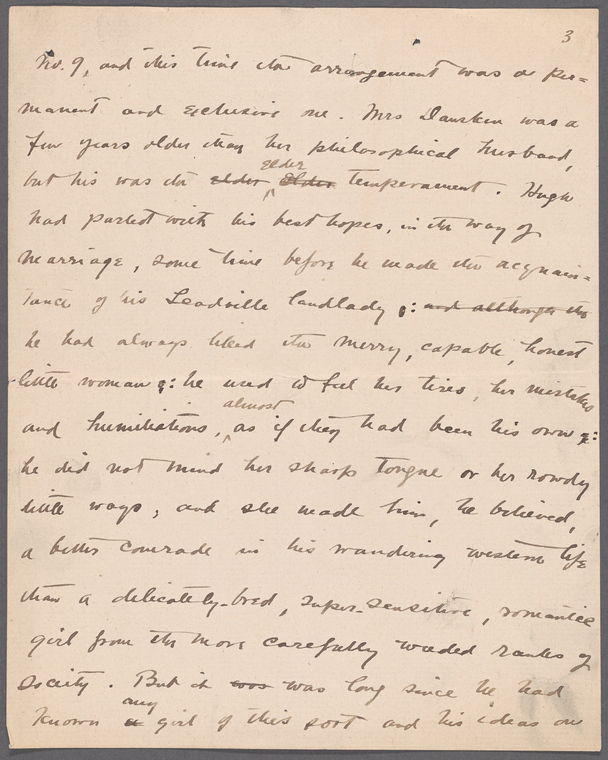 3
No. 9, and this time the arrangement was a per=
manent and exclusive one. Mrs Dansken was a
few years older than her philosophical husband,
elder
but his was the elder Elder temperament. Hugh
had parted with his best hopes, in the way of
marriage, some time before he made the acquain=
tance of his Leadville landlady: and although the
he had always liked the merry, capable, honest
little woman: he used to feel her tires, her mistakes
almost
and humiliations, as if they had been his own:
he did not mind her sharp tongue or her rowdy
little ways; and she made him, he believed,
a better comrade in his wandering western life
than a delicately-bred, super-sensitive, romantic
girl from the more carefully weeded ranks of
society. But it was was long since he had
any
known a girl of this sort and his ideas on